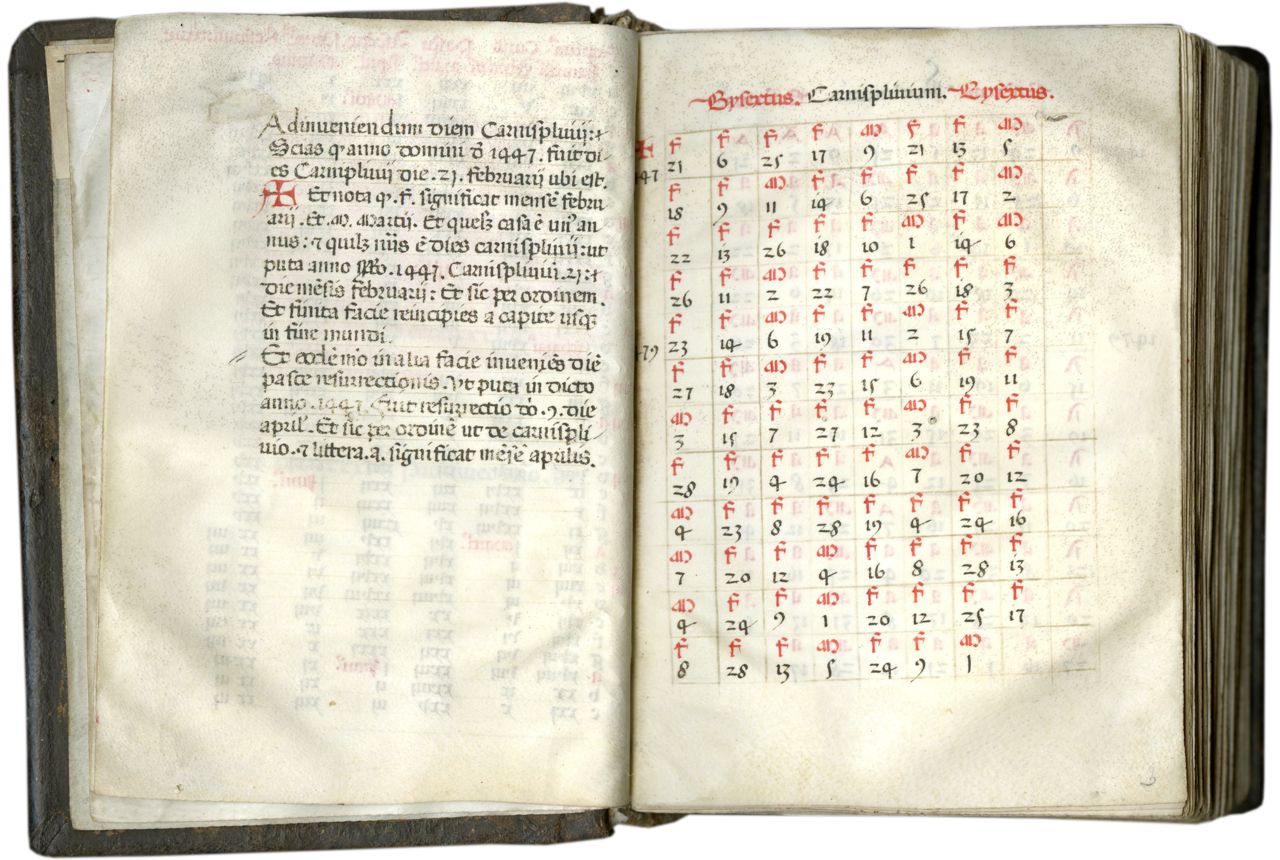 Ad inveniendum diem Carnisplivii:+
Scias q anno domini d 1447. fuit di
es Carniplivii die .21. februarii ubi est.
✠ Et nota q. f. significat mense febru
arii. Et. M. Martii. Et quelz casa e un an
nus: & quilz nus e dies carnisplivii: ut
puta anno 1447. Carnisplivii. 21:+
die mesis februarii: Et sic per ordinem.
Et finita facie reincipies a capite usq
in fine mundi.
Et eode mo in alia facie invenies die
pasce resurrectionis. Ut puta in dicto
anno .1447. Fuit resurrectio do .9. die
april. Et sic per ordine ut de carnispli
vio. & littera. a. significat mese aprilis.
Bysextus. Carnisplivium. Bysextus.
✠ f f f f M f f M
47 21 6 25 17 9 21 13 5
f f M f M f f M
18 9 11 14 6 25 17 2
f f f f f M f M
22 13 26 18 10 1 14 6
f f M f f f f M
26 11 2 22 7 26 18 3
f f M f M M f M
79 23 14 6 19 11 2 15 7
f f M f f M f f
27 18 3 23 15 6 19 11
M f f f f M f f
3 15 7 27 12 3 23 8
f f f f f M f f
28 19 4 24 16 7 20 12
M f f f f f f f
4 23 8 28 19 4 24 16
M f f M f f f f
7 20 12 4 16 8 28 13
M f f M f f f f
4 24 9 1 20 12 25 17
f f f M f f M
8 28 13 5 24 9 1
3